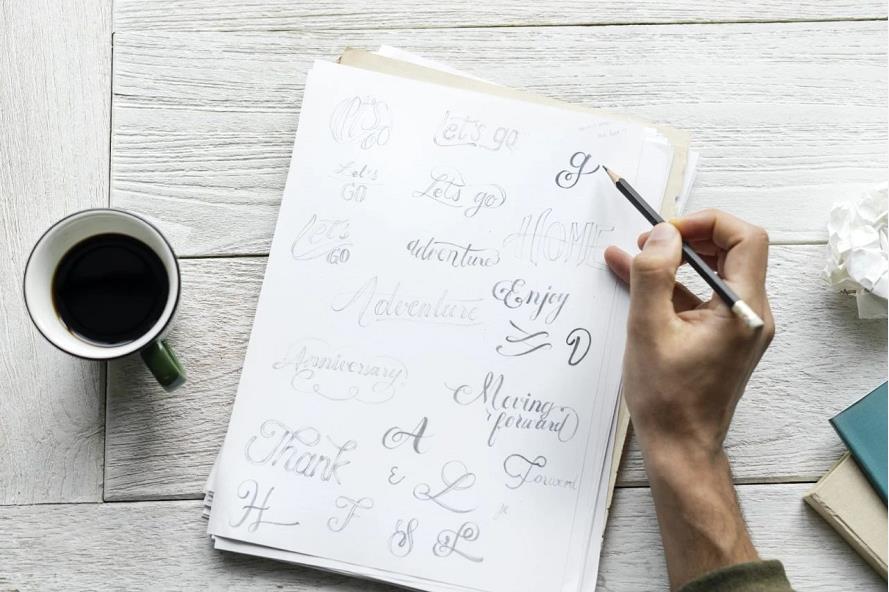 Let's go
Let's go
g
Let's
GO
Lets go
Let's
GO
adventure
HOME
Adventure
Enjoy
D
Anniversary
Moving
forward
Thank
A
E
L
Forward
H
F
S
L